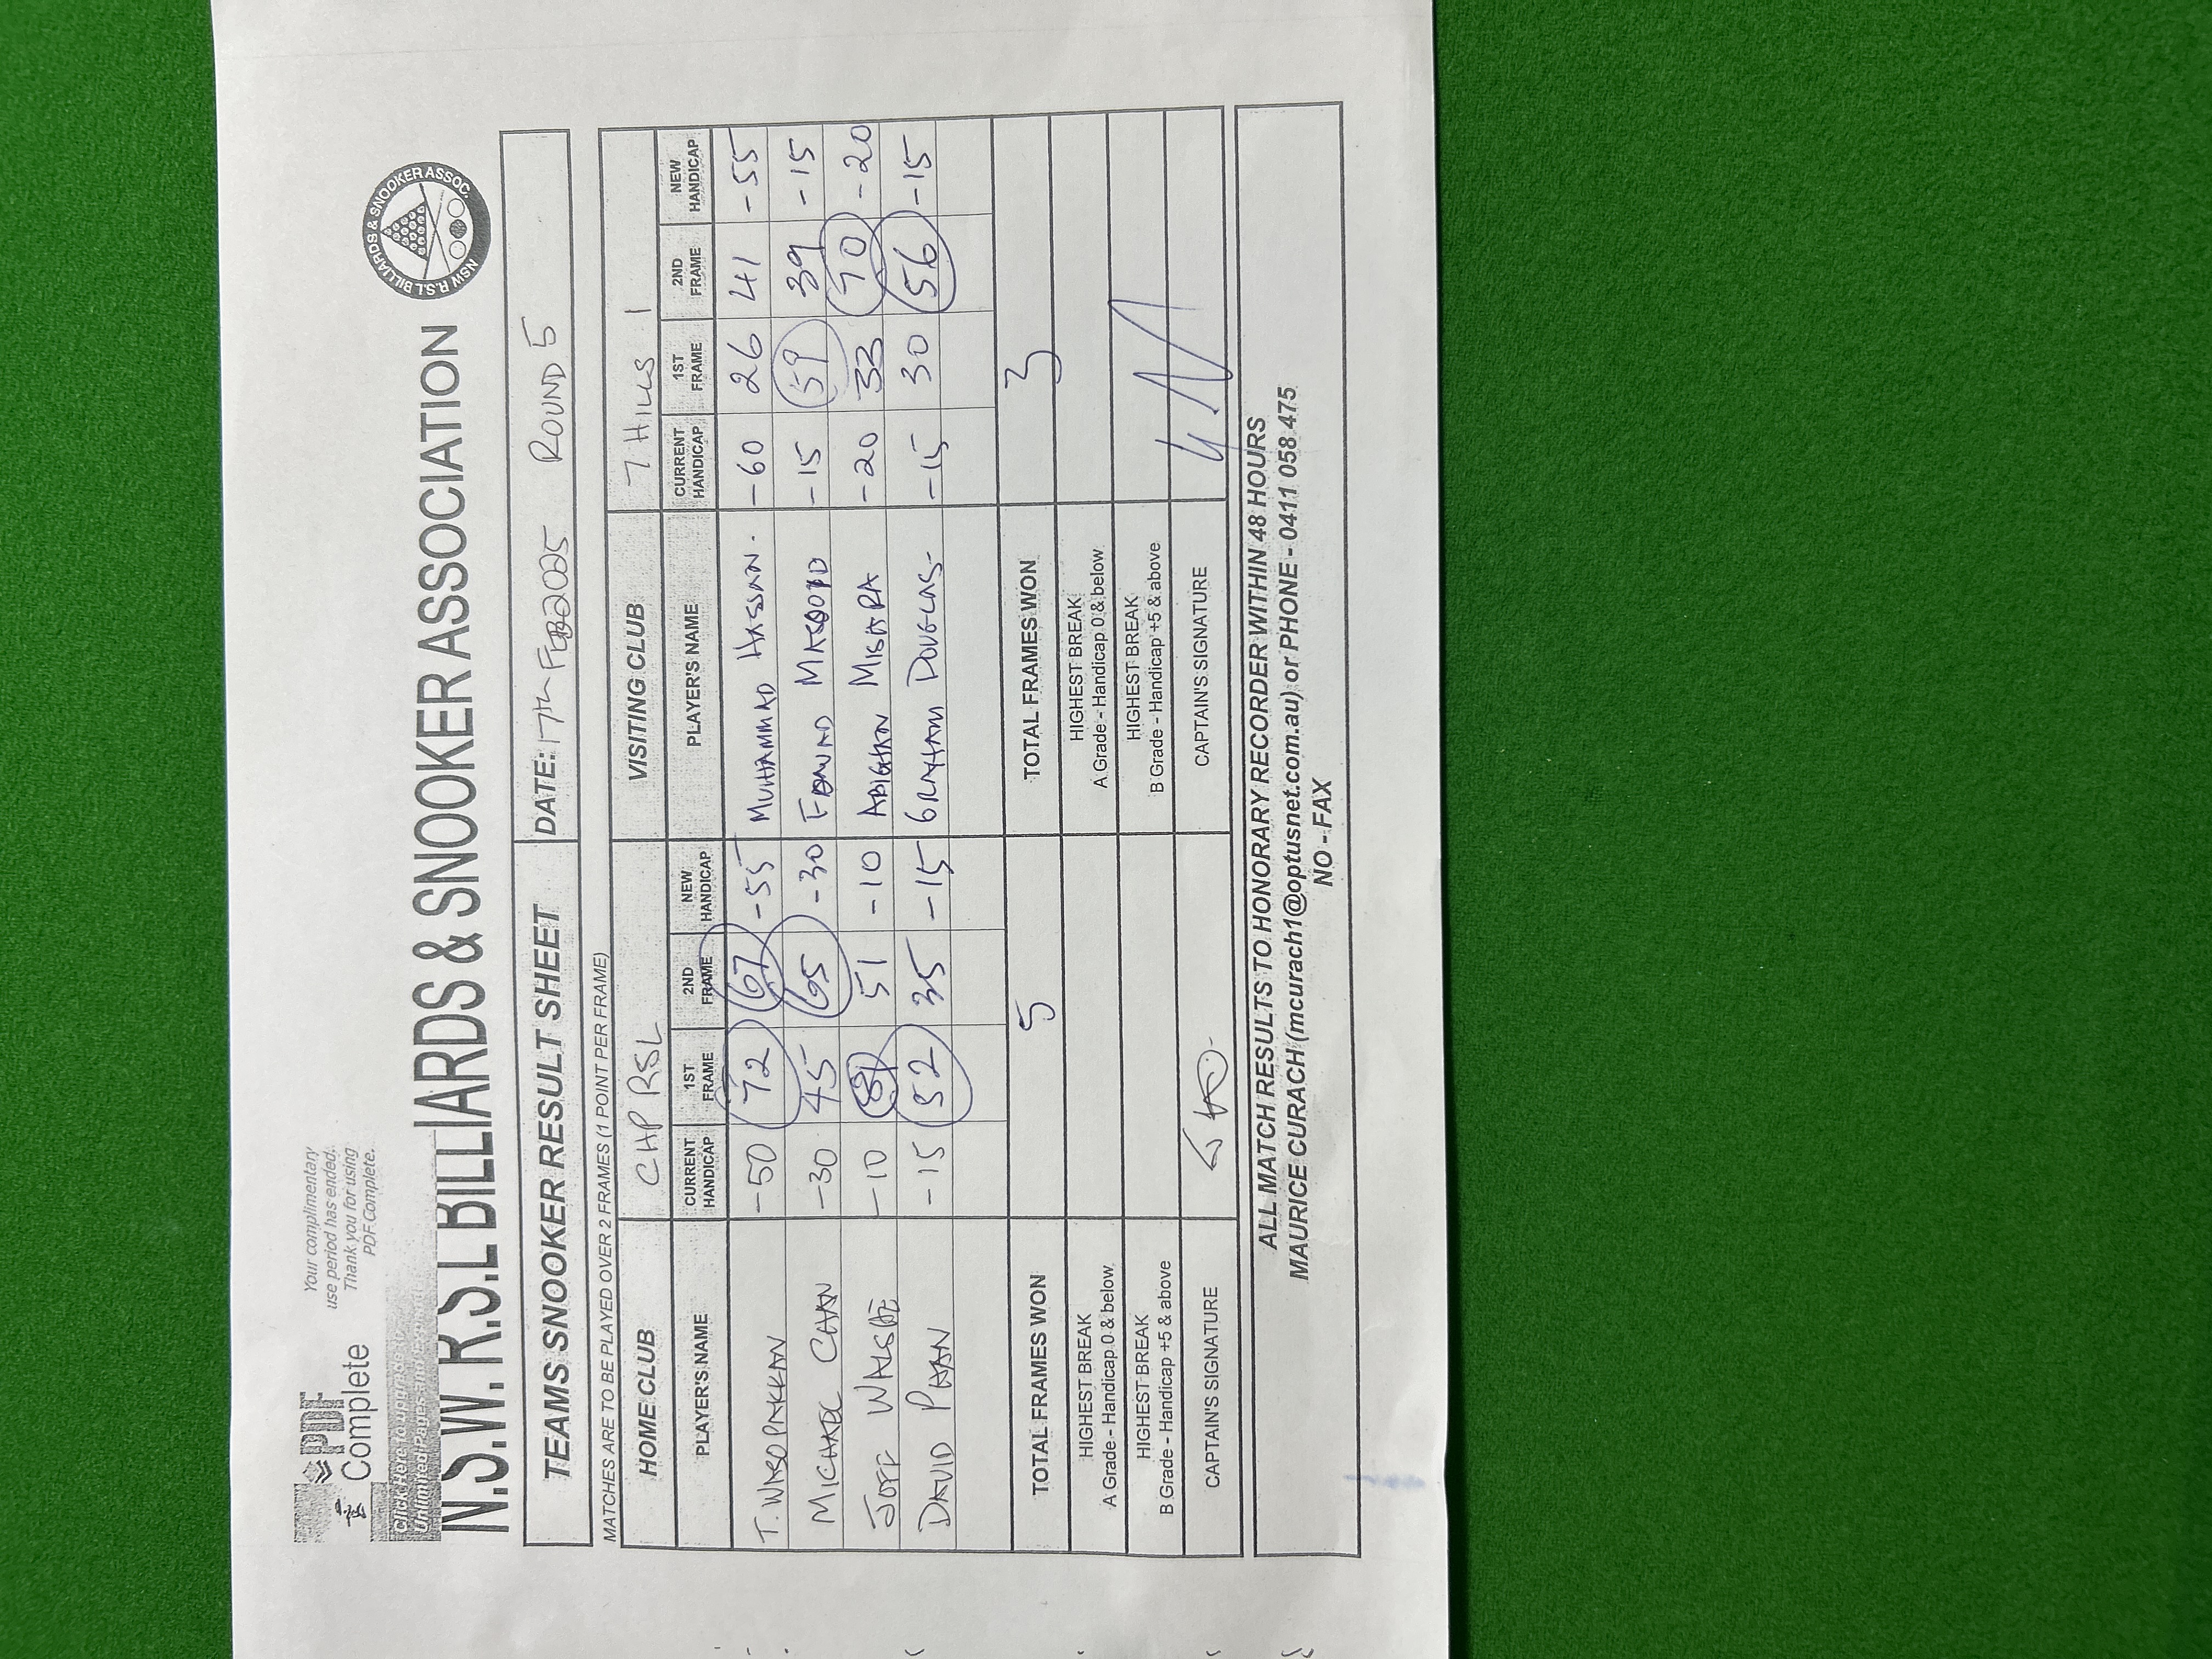 Your complimentary
use period has ended.
Thank you for using
PDF Complete.
PDF
Complete
Click Here to upgrade to
Unlimited Pages and Expanded
N.S.W. R.S.L BILLIARDS & SNOOKER ASSOCIATION
NSW R.S.L BILLIARDS & SNOOKER ASSOC.
TEAMS SNOOKER RESULT SHEET DATE: 17th FEB 2025 ROUND 5
MATCHES ARE TO BE PLAYED OVER 2 FRAMES (1 POINT PER FRAME)
HOME CLUB CHP RSL VISITING CLUB 7 HILLS 1
PLAYER'S NAME CURRENT HANDICAP 1ST FRAME 2ND FRAME NEW HANDICAP PLAYER'S NAME CURRENT HANDICAP 1ST FRAME 2ND FRAME NEW HANDICAP
T. WASOPAKKAN -50 72 67 -55 MUHAMMAD HASSAN. -60 26 41 -55
MICHAEL CHAN -30 45 65 -30 FAWAD MAQOOD -15 59 39 -15
JOFF WALSHE -10 51 -10 ABIGHAN MISHRA -20 33 70 -20
DAVID PHAN -15 52 35 -15 GRAHAM DOUGLAS -15 30 56 -15
TOTAL FRAMES WON 5 TOTAL FRAMES WON 3
HIGHEST BREAK
A Grade - Handicap 0 & below
HIGHEST BREAK
A Grade - Handicap 0 & below
HIGHEST BREAK
B Grade - Handicap +5 & above
HIGHEST BREAK
B Grade - Handicap +5 & above
CAPTAIN'S SIGNATURE CAPTAIN'S SIGNATURE
ALL MATCH RESULTS TO HONORARY RECORDER WITHIN 48 HOURS
MAURICE CURACH (mcurach1@optusnet.com.au) or PHONE - 0411 058 475
NO - FAX